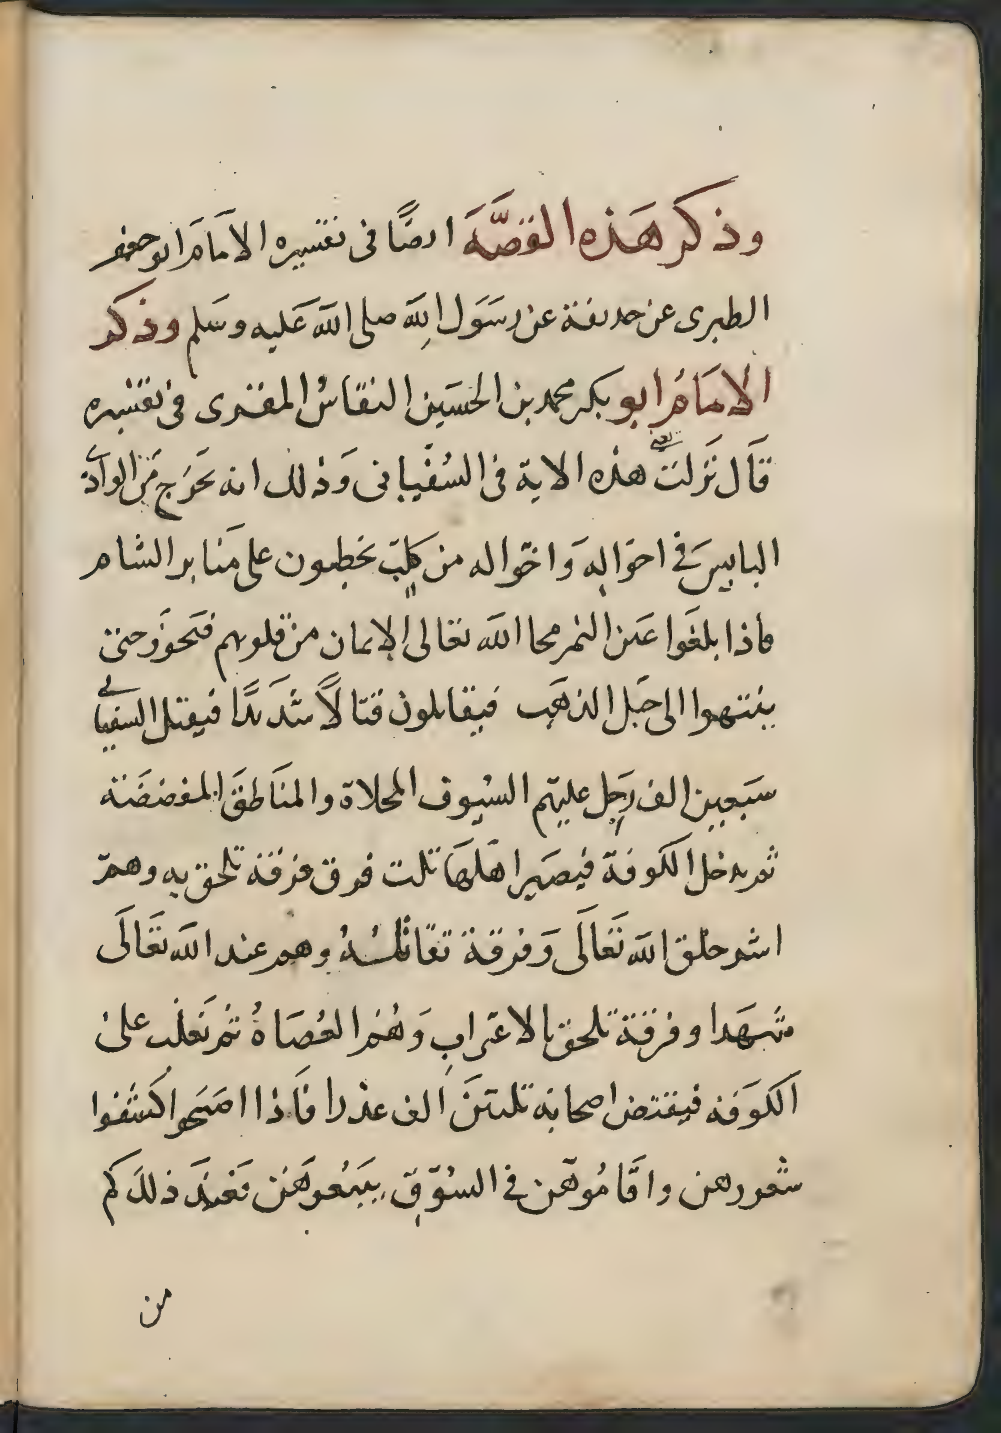 وذكر هذه القصة ايضا في تفسيره الامام ابو جعفر
الطبري عن حديفة عن رسول الله صلى الله عليه وسلم وذكر
الامام ابو بكر محمد بن الحسين النقاش المقرى في تفسيره
قال نزلت هذه الاية في السفياني وذلك انه يخرج من الوادي
اليابس في احواله واخواله من كلب يخطبون على منابر الشام
فاذا بلغوا عين التمر محا الله تعالى الايمان من قلوبهم فتجوز حتى
ينتهوا الى جبل الذهب فيقاتلون قتالا شديدا فيقتل السفياني
سبعين الف رجل عليهم السيوف المحلاة والمناطق المفضضة
ثم يدخل الكوفة فيصير اهلها ثلث فرق فرقة تلحق به وهم
اشر خلق الله تعالى وفرقة تقاتله وهم عند الله تعالى
شهدا وفرقة تلحق بالاعراب وهم العصاة ثم تغلب على
الكوفة فيفتض اصحابه ثلثين الف عذرا فاذا اصبحوا كشفوا
شعورهن واقاموهن في السوق يبيعوهن فعند ذلك كم
من